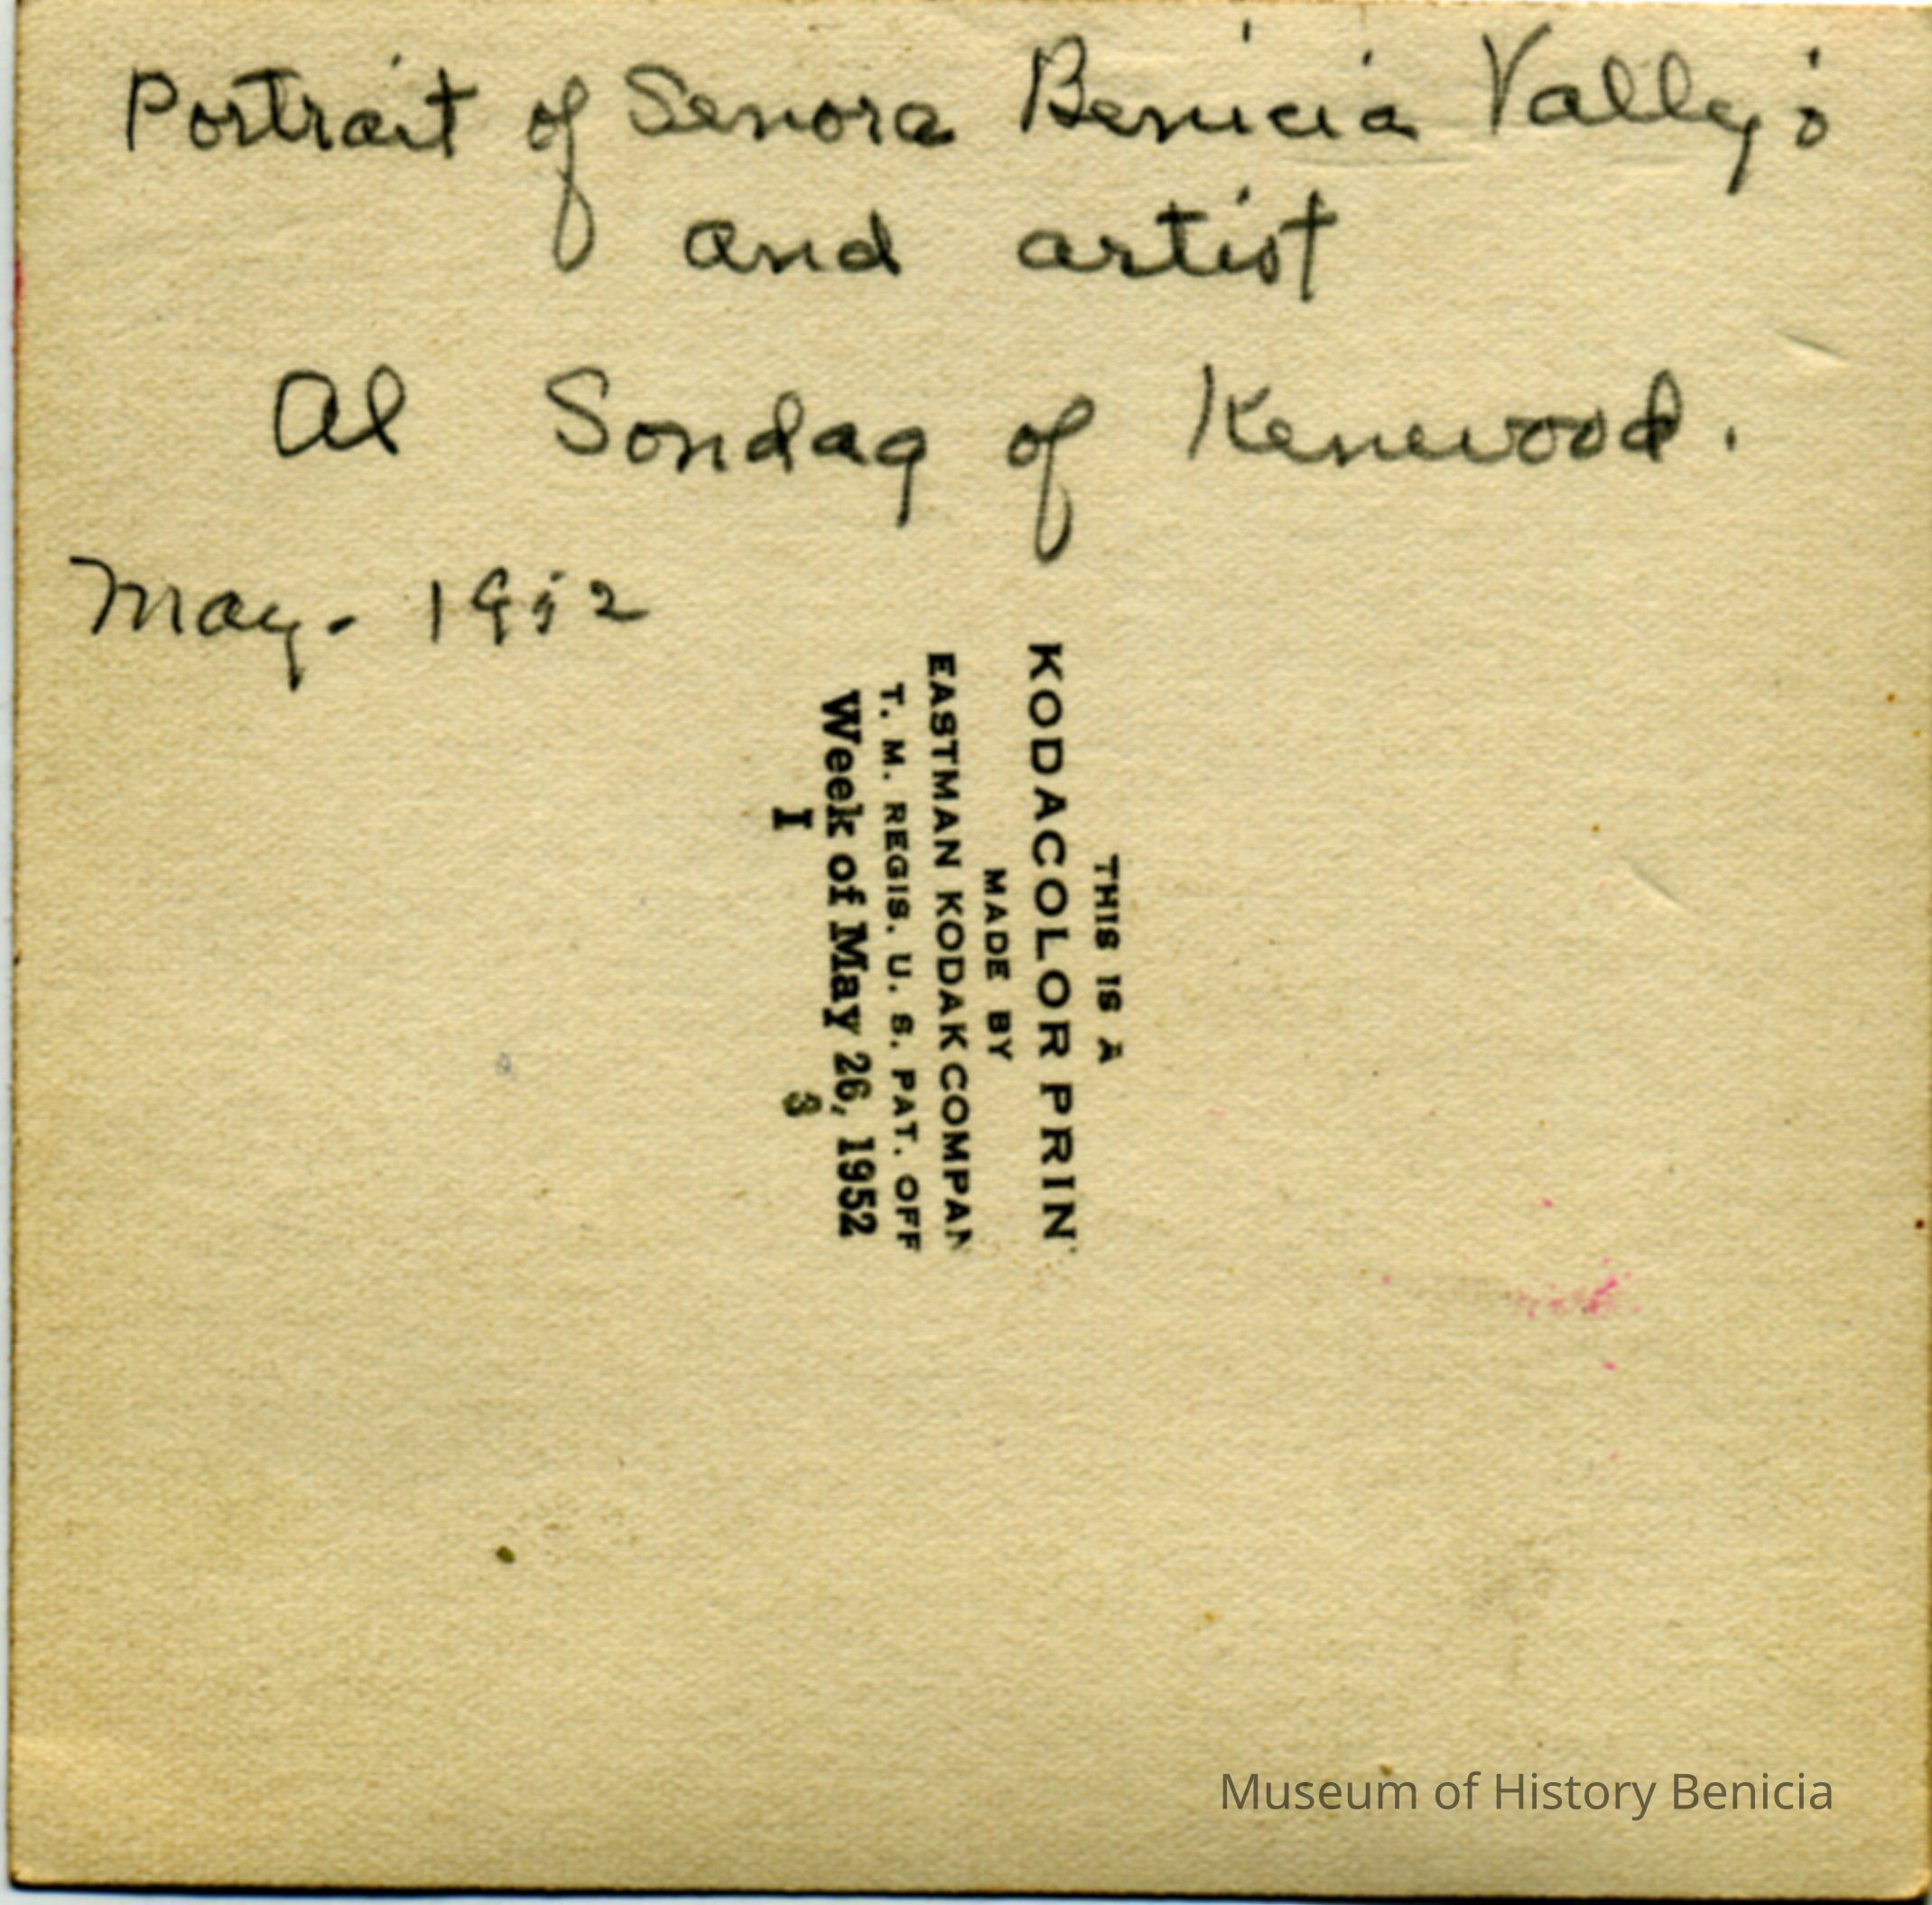 Portrait of Senora Benicia Vallejo
and artist
Al Sondag of Kenewood.
May. 1952
THIS IS A
KODACOLOR PRIN
MADE BY
EASTMAN KODAK COMPAN
T. M. REGIS. U. S. PAT. OFF
Week of May 26, 1952
I 3
Museum of History Benicia